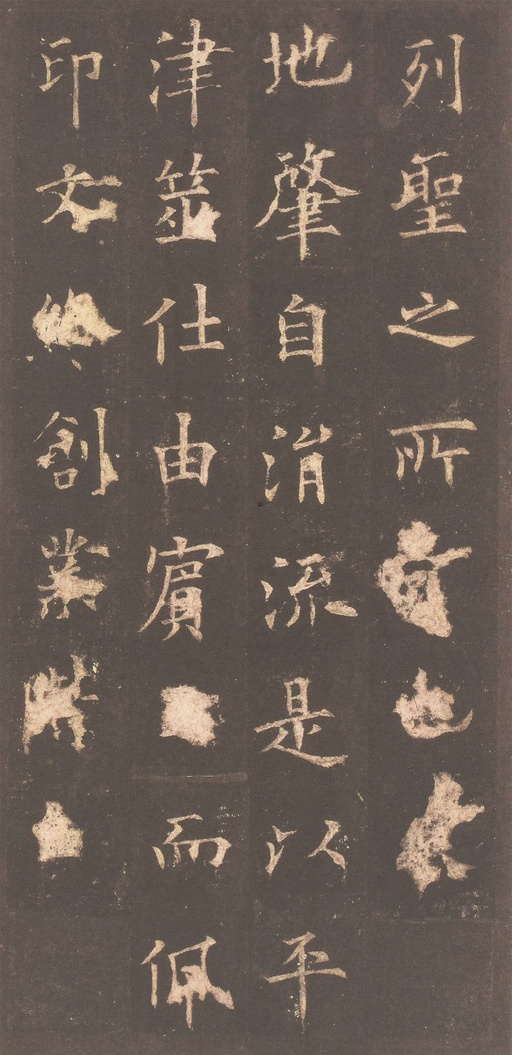 列聖之所
地肇自涓流是以平
津筮仕由賓而佩
印文終創業